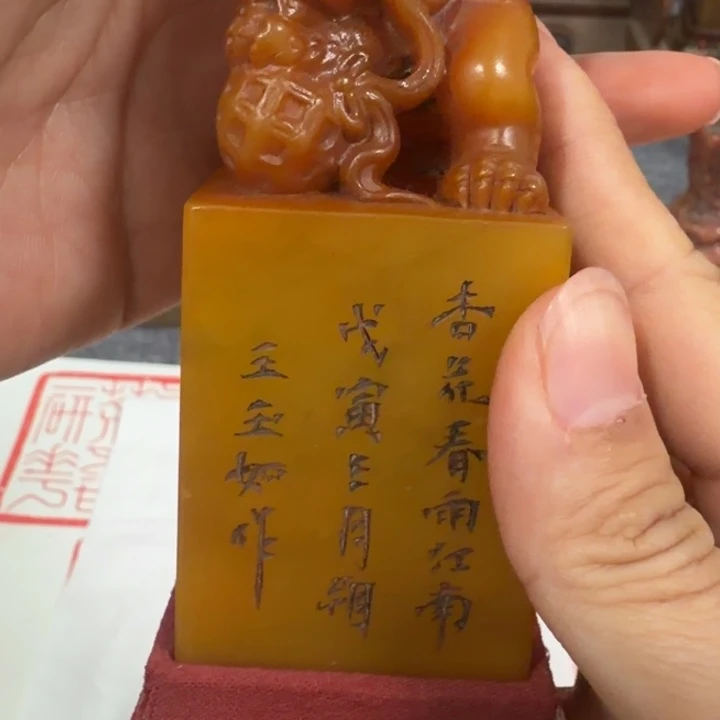 杏花春雨江南
戊寅三月朔
王玉如作